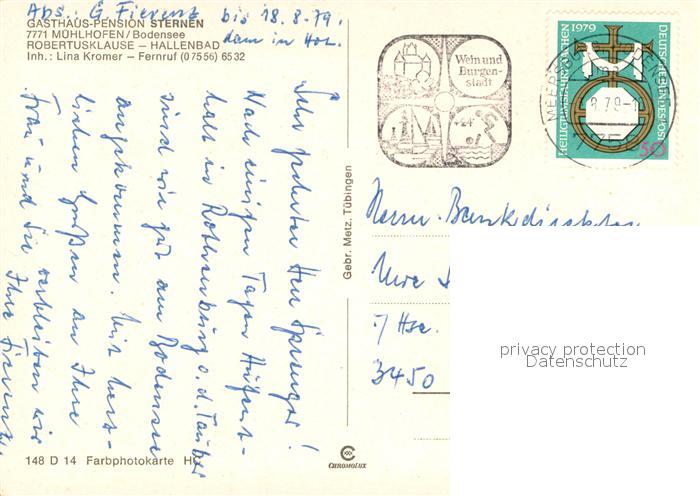 Abs.: G. Fierenz bis 18.8.79,
dann in Hol.
GASTHAUS-PENSION STERNEN
7771 MÜHLHOFEN/Bodensee
ROBERTUSKLAUSE – HALLENBAD
Inh.: Lina Kromer – Fernruf (07556) 6532
Sehr geehrter Herr Sprenger!
Nach einigen Tagen Aufent-
halt in Rothenburg o.d. Tauber
sind wir gut am Bodensee
angekommen. Mit herz-
lichen Grüßen an Ihre
Frau und Sie verbleiben wir
Ihre Fierenz
148 D 14 Farbphotokarte
Gebr. Metz, Tübingen
CHROMOLUX
Wein und
Burgen-
stadt
MEERSBURG
7.79-1
HEILIGTUMSFAHRT AACHEN 1979
DEUTSCHE BUNDESPOST
50
Herrn Bankdirektor
Uwe
Hse.
3450
privacy protection
Datenschutz